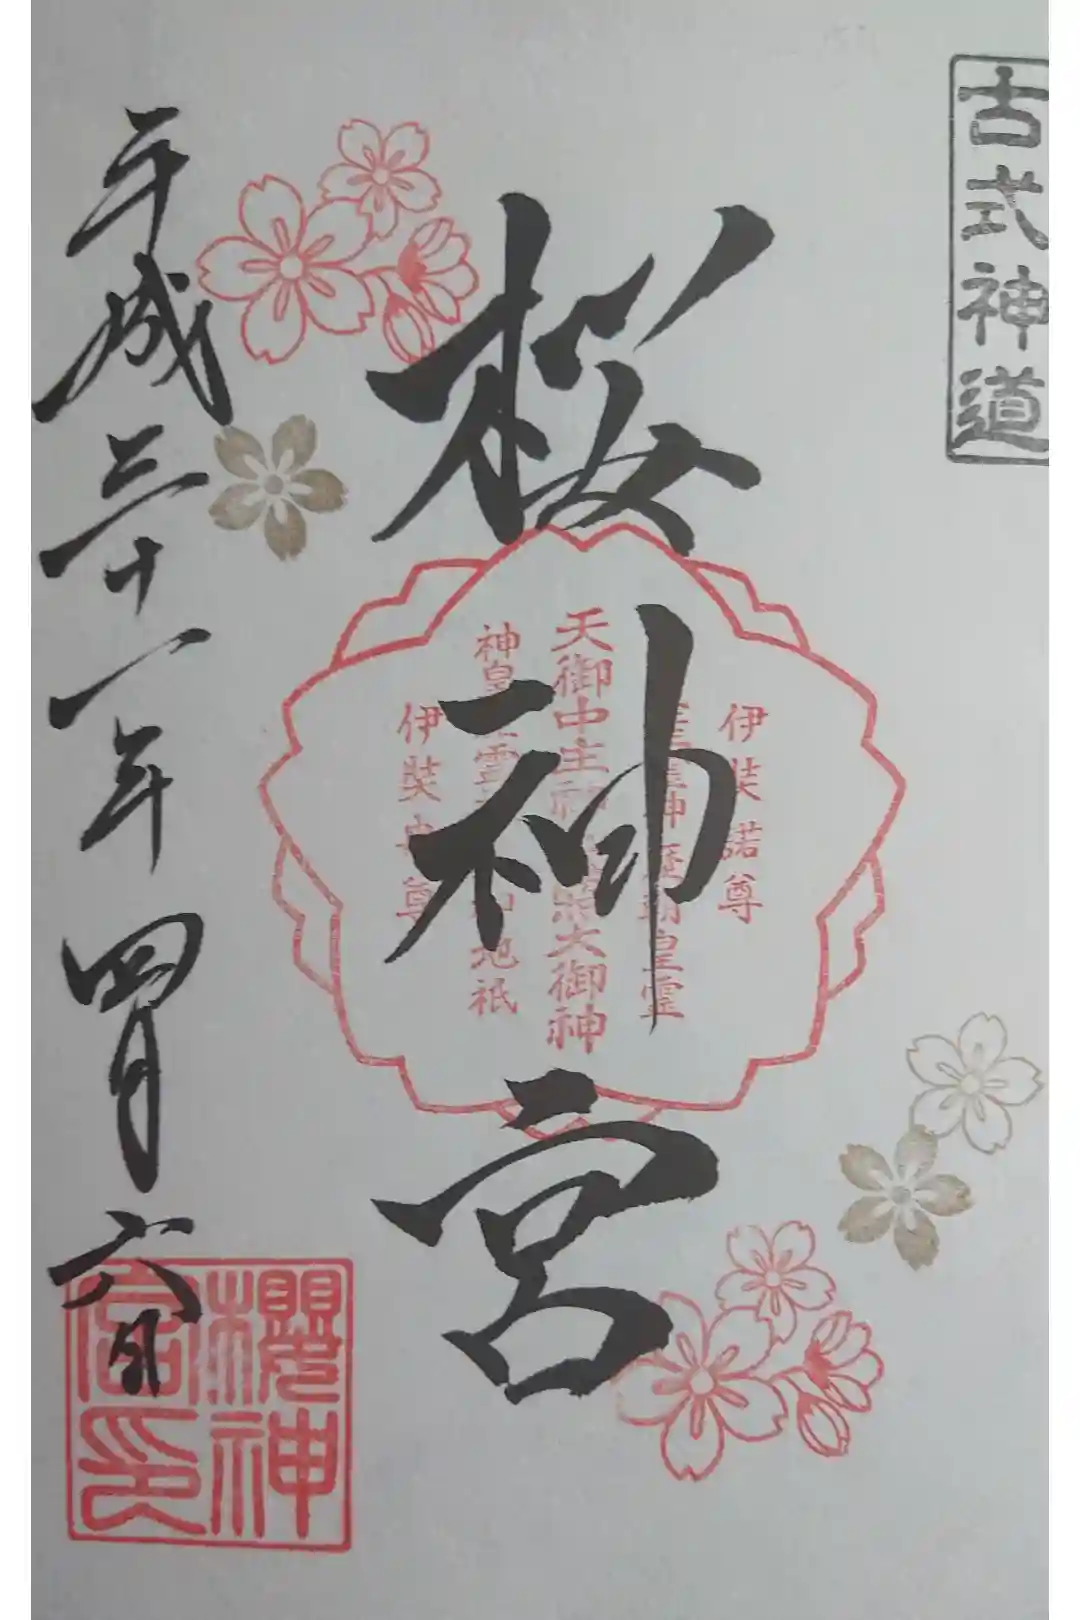 古式神道
桜神宮
伊弉諾尊
歴朝皇霊
天御中主神 大御神
神皇 地祇
伊弉 尊
平成三十一年四月六日
櫻神宮印